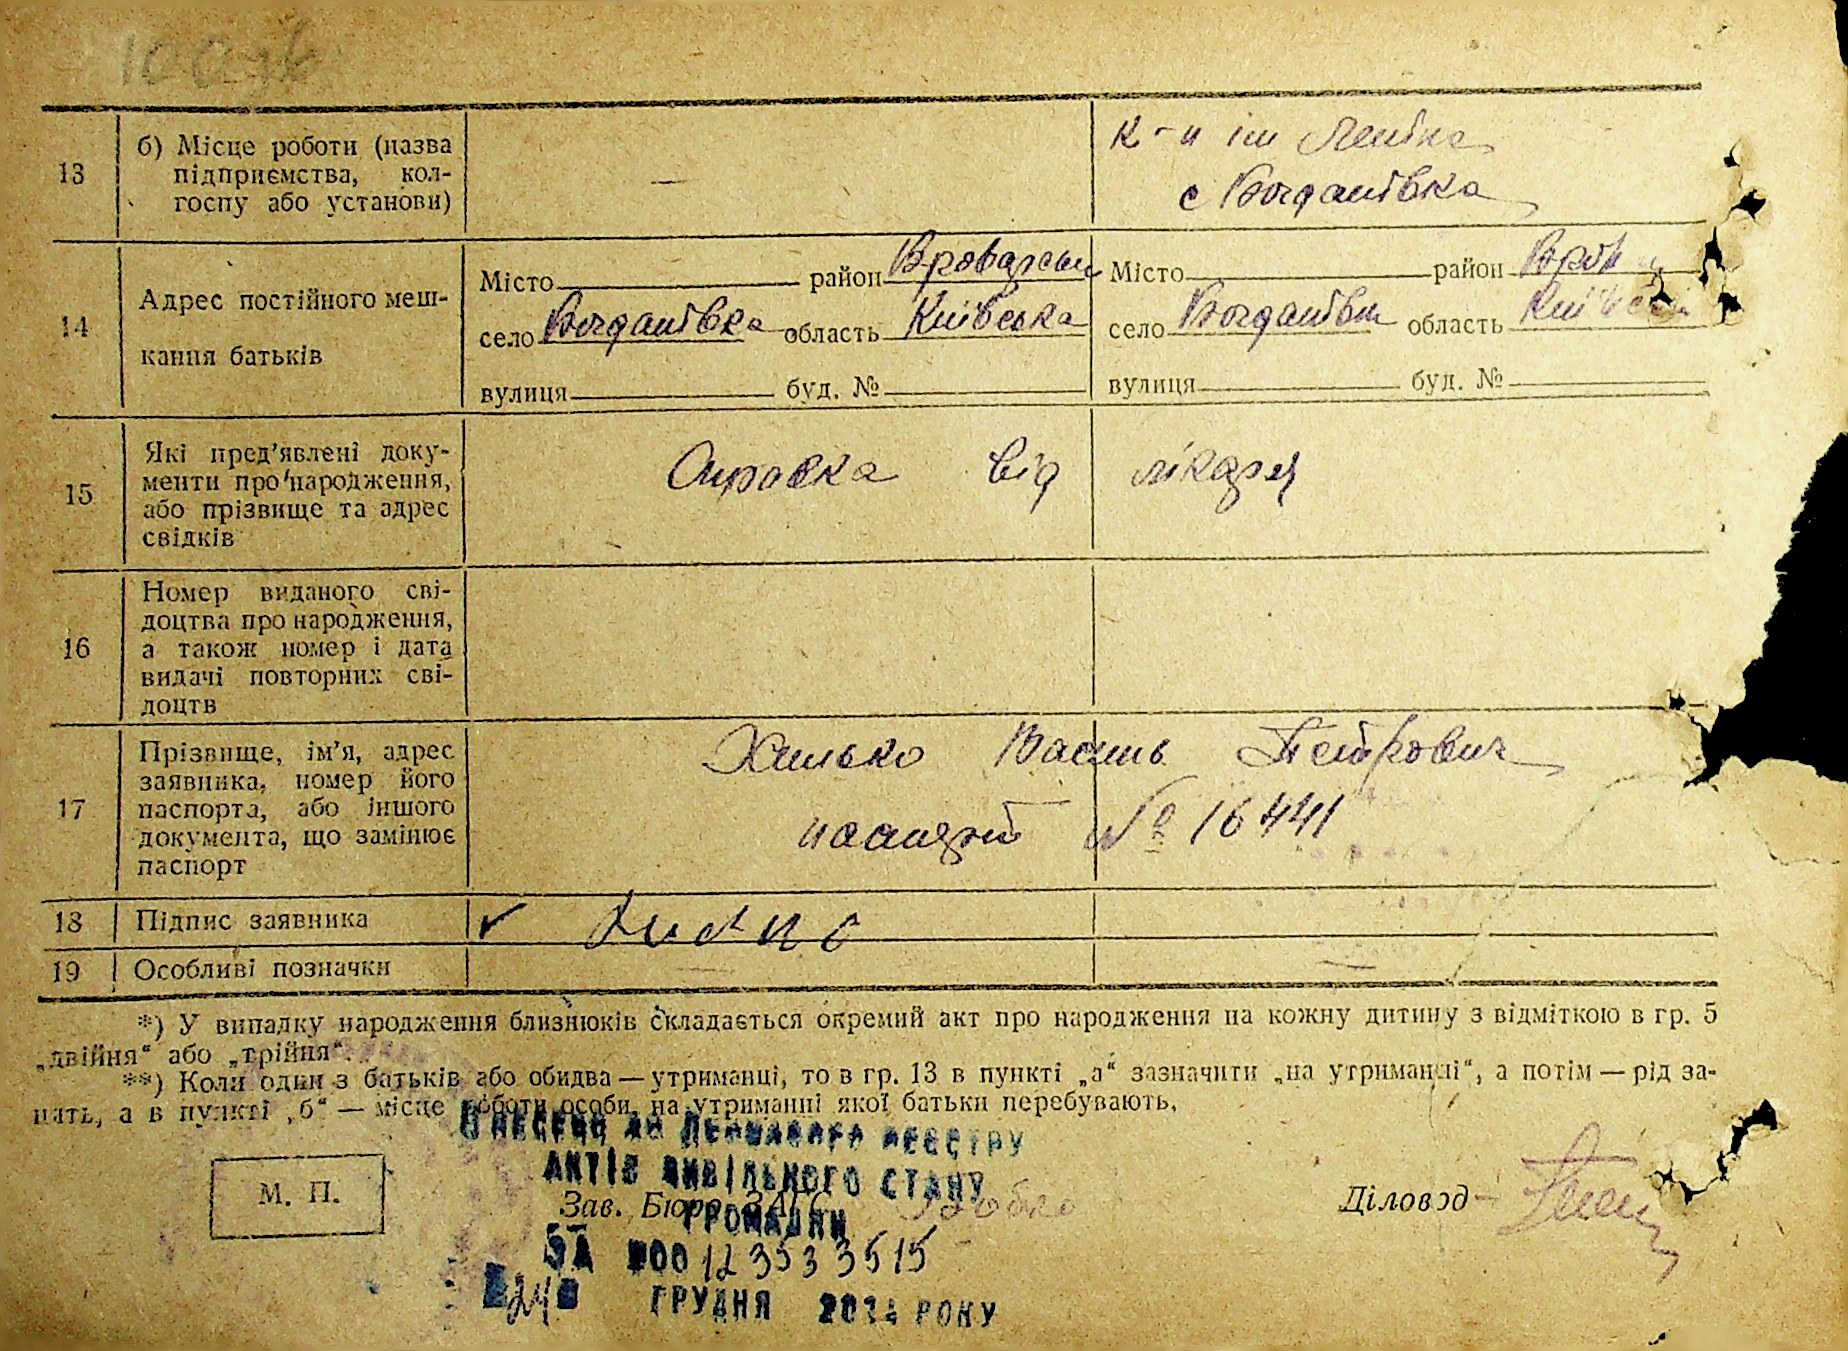 13
б) Місце роботи (назва
підприємства, кол-
госпу або установи)
—
к-п ім Леніна
с Богданівка
14
Адрес постійного меш-
кання батьків
Місто район Броварськ
село Богданівка область Київська
вулиця буд. №
Місто район Бров
село Богданівк область Київськ
вулиця буд. №
15
Які пред'явлені доку-
менти про народження,
або прізвище та адрес
свідків
Справка від лікаря
16
Номер виданого сві-
доцтва про народження,
а також номер і дата
видачі повторних сві-
доцтв
17
Прізвище, ім'я, адрес
заявника, номер його
паспорта, або іншого
документа, що замінює
паспорт
Хилько Василь Петрович
паспорт № 16441
18
Підпис заявника
✓ Хилько
19
Особливі позначки
— —
*) У випадку народження близнюків складається окремий акт про народження на кожну дитину з відміткою в гр. 5
„двійня“ або „трійня“.
**) Коли один з батьків або обидва — утриманці, то в гр. 13 в пункті „а“ зазначити „на утриманні“, а потім — рід за-
нять, а в пункті „б“ — місце роботи особи, на утриманні якої батьки перебувають.
ВНЕСЕНО ДО ДЕРЖАВНОГО РЕЄСТРУ
АКТІВ ЦИВІЛЬНОГО СТАНУ
ГРОМАДЯН
М. П.
Зав. Бюро ЗАГС
Діловод
ЗА №00123533515
"24" ГРУДНЯ 2024 РОКУ